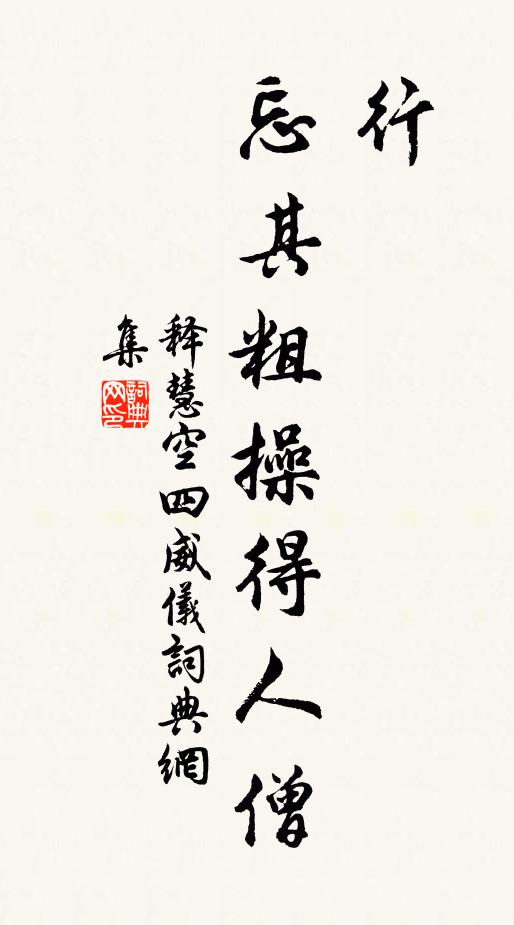 行
忘其粗操得人僧
释慧空四威儀詞典網
集
詞典
网印